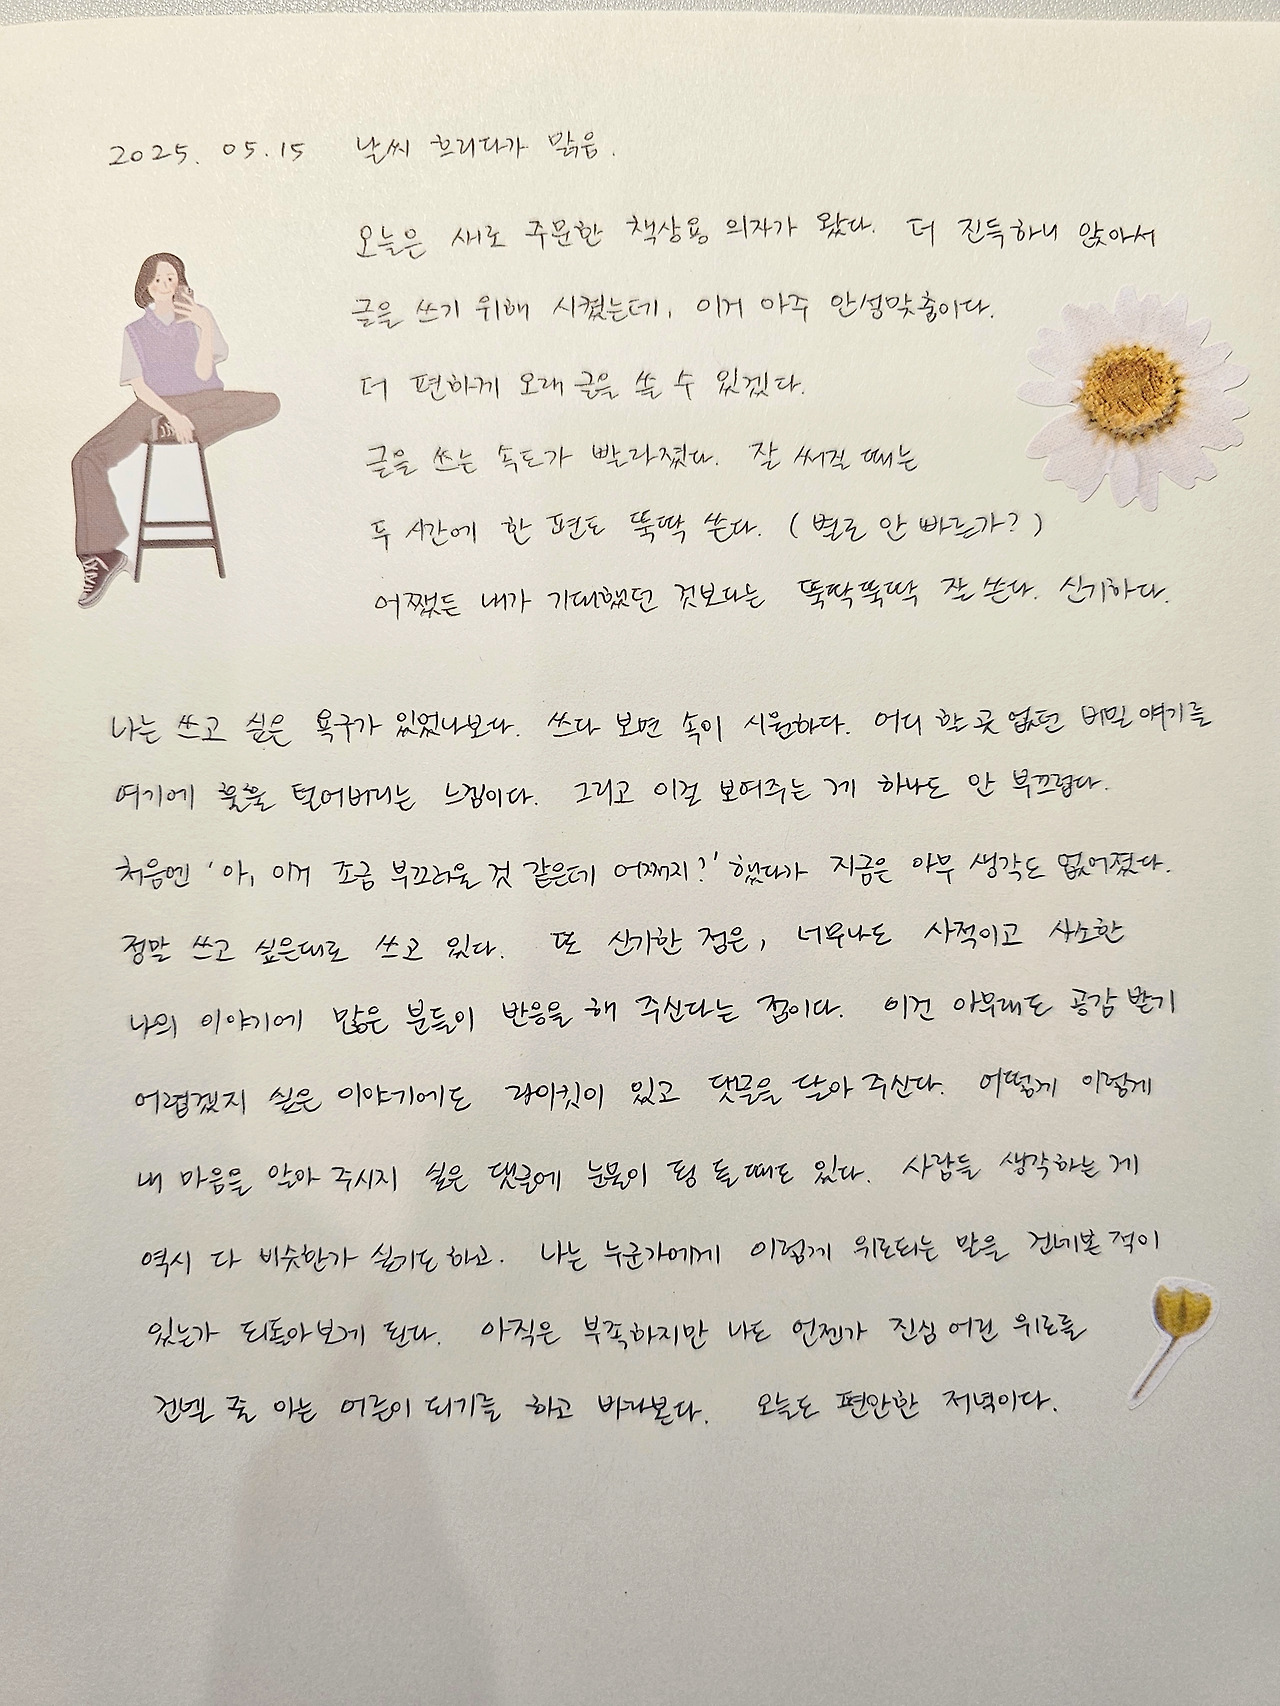 2025. 05. 15 날씨 흐리다가 맑음.
오늘은 새로 주문한 책상용 의자가 왔다. 더 진득하니 앉아서
글을 쓰기 위해 시켰는데, 이거 아주 안성맞춤이다.
더 편하게 오래 글을 쓸 수 있겠다.
글을 쓰는 속도가 빨라졌다. 잘 써질 때는
두 시간에 한 편도 뚝딱 쓴다. (별로 안 빠른가?)
어쨌든 내가 기대했던 것보다는 뚝딱뚝딱 잘 쓴다. 신기하다.
나는 쓰고 싶은 욕구가 있었나보다. 쓰다 보면 속이 시원하다. 어디 할 곳 없던 비밀 얘기를
여기에 훌훌 털어버리는 느낌이다. 그리고 이걸 보여주는 게 하나도 안 부끄럽다.
처음엔 '아, 이거 조금 부끄러울 것 같은데 어쩌지?' 했다가 지금은 아무 생각도 없어졌다.
정말 쓰고 싶은대로 쓰고 있다. 또 신기한 점은, 너무나도 사적이고 사소한
나의 이야기에 많은 분들이 반응을 해 주신다는 점이다. 이건 아무래도 공감 받기
어렵겠지 싶은 이야기에도 라이킷이 있고 댓글을 달아 주신다. 어떻게 이렇게
내 마음을 알아 주시지 싶은 댓글에 눈물이 핑 돌 때도 있다. 사람들 생각하는 게
역시 다 비슷한가 싶기도 하고. 나는 누군가에게 이렇게 위로되는 말을 건네본 적이
있는가 되돌아보게 된다. 아직은 부족하지만 나도 언젠가 진심 어린 위로를
건넬 줄 아는 어른이 되기를 하고 바라본다. 오늘도 편안한 저녁이다.